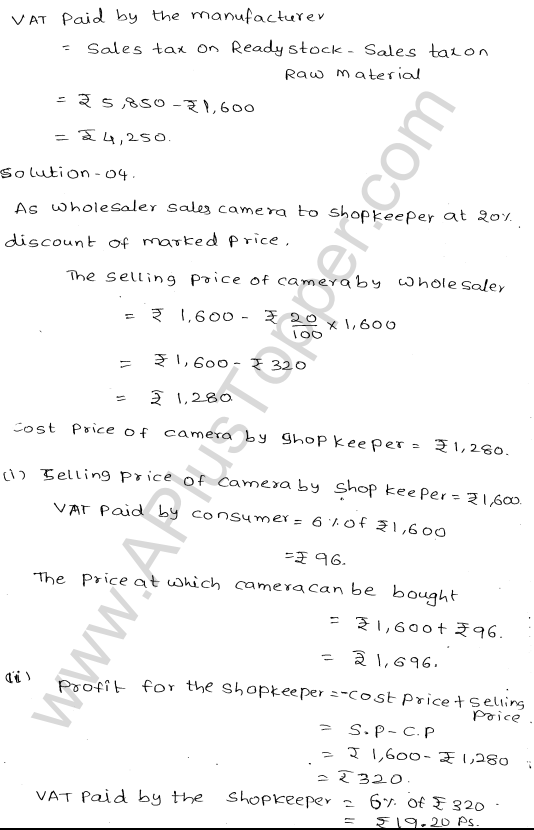 VAT Paid by the manufacturer
= Sales tax on Ready stock - Sales tax on
Raw material
= ₹ 5,850 - ₹1,600
= ₹ 4,250.
Solution-04.
As wholesaler sales camera to shopkeeper at 20%
discount of marked price.
The selling price of camera by wholesaler
= ₹ 1,600 - ₹ 20/100 × 1,600
= ₹1,600 - ₹ 320
= ₹ 1,280
Cost Price of camera by shop keeper = ₹1,280.
(i) Selling price of camera by shop keeper = ₹1,600.
VAT Paid by consumer = 6% of ₹1,600
= ₹ 96.
The price at which camera can be bought
= ₹1,600 + ₹96.
= ₹ 1,696.
(ii) Profit for the shopkeeper = -cost price + selling
price.
= S.P - C.P
= ₹ 1,600 - ₹ 1,280
= ₹320.
VAT Paid by the shopkeeper = 6% of ₹320.
= ₹19.20 Ps.
www.APlusTopper.com